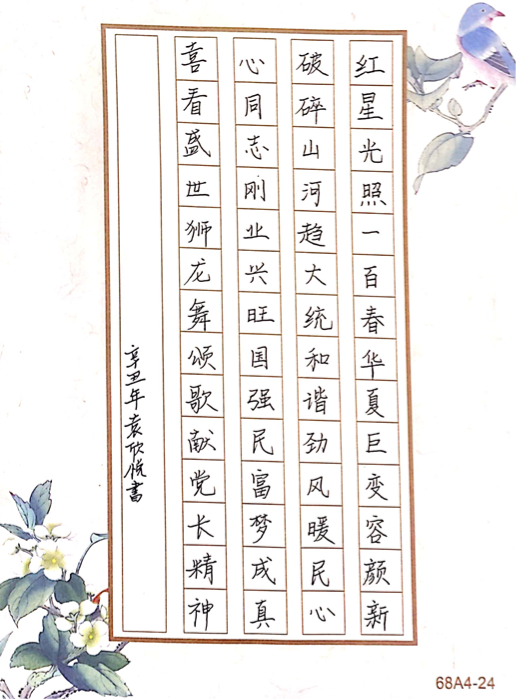 红星光照一百春华夏巨变容颜新
破碎山河趋大统和谐劲风暖民心
心同志刚业兴旺国强民富梦成真
喜看盛世狮龙舞颂歌献党长精神
辛丑年袁欣悦书
68A4-24